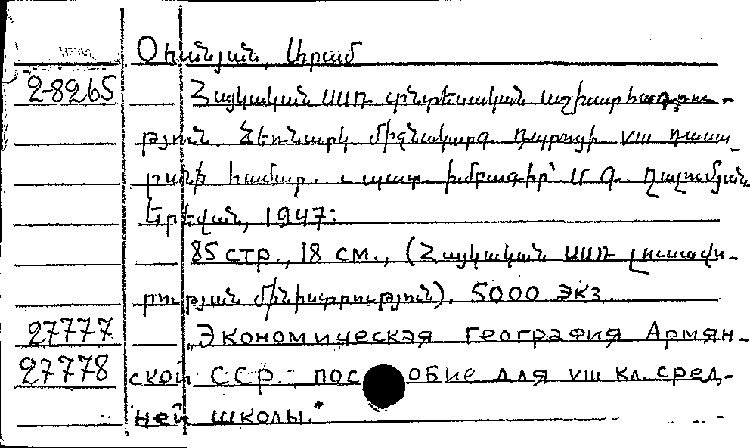 Օհանյան, Արամ
28265 Հայկական ՍՍՌ տնտեսական աշխարհագրու-
թյուն. Ձեռնարկ միջնակարգ դպրոցի VIII դասա-
րանի համար. պատ. խմբագիր՝ Ս. Գ.
Երևան, 1947:
85 стр., 18 см., (Հայկական ՍՍՌ լուսավո-
րության մինիստրություն). 5000 экз.
27777 "Экономическая география Армян-
27778 ской ССР - пособие для VIII кл. сред-
ней школы."